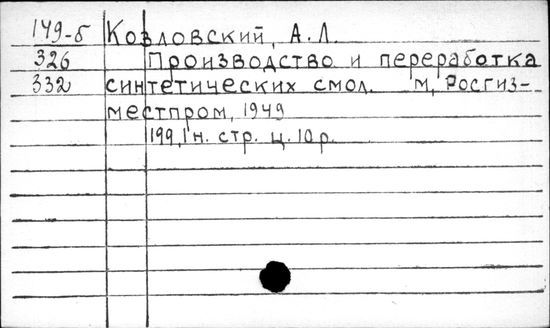 149-б Козловский, А.Л.
326 Производство и переработка
332 синтетических смол. М, Росгиз-
местпром, 1949
199, 1 н. стр. ц. 10 р.